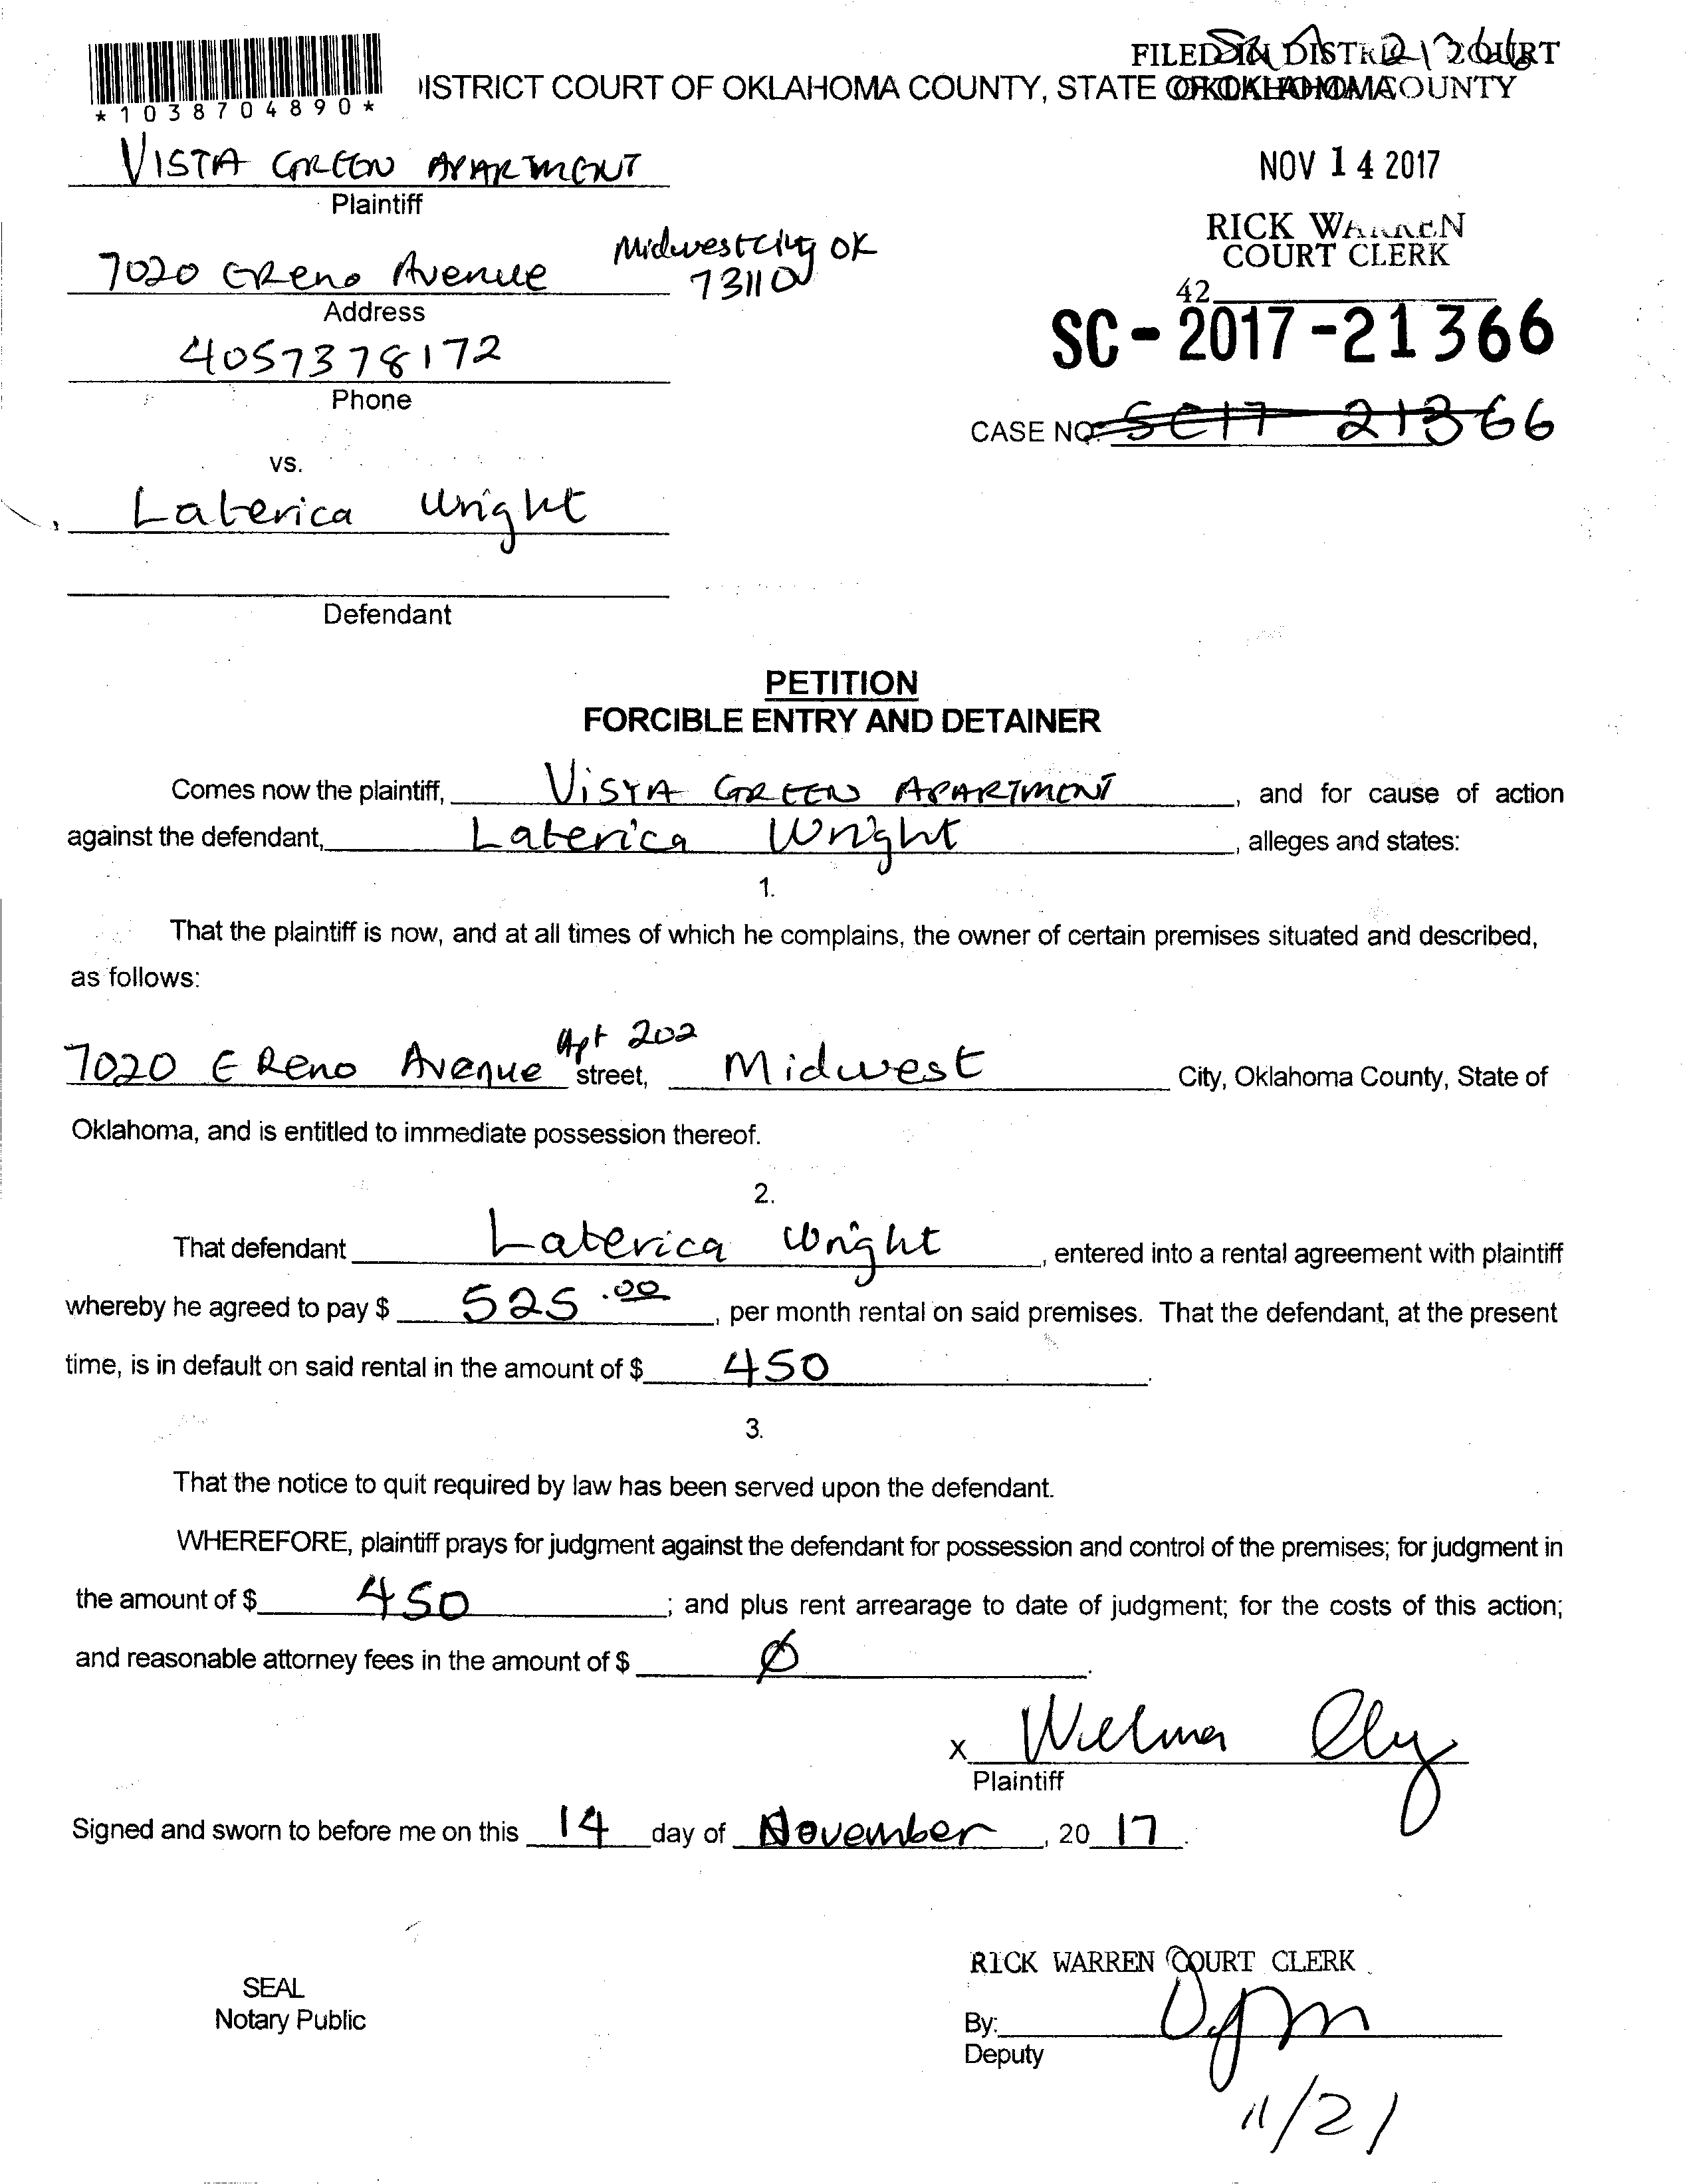 FILED IN DISTRICT COURT
*1038704890*
DISTRICT COURT OF OKLAHOMA COUNTY, STATE OF OKLAHOMA
OKLAHOMA COUNTY
VISTA GREEN APARTMENT
Plaintiff
NOV 14 2017
RICK WARREN
COURT CLERK
42
7020 E Reno Avenue
Midwest city OK
73110
Address
4057378172
Phone
SC-2017-21366
CASE NO. SC17 21366
vs.
Laterica Wright
Defendant
PETITION
FORCIBLE ENTRY AND DETAINER
Comes now the plaintiff, VISTA GREEN APARTMENT, and for cause of action
against the defendant, Laterica Wright, alleges and states:
1.
That the plaintiff is now, and at all times of which he complains, the owner of certain premises situated and described,
as follows:
7020 E Reno Avenue Apt 202 street, Midwest City, Oklahoma County, State of
Oklahoma, and is entitled to immediate possession thereof.
2.
That defendant Laterica Wright, entered into a rental agreement with plaintiff
whereby he agreed to pay $ 525.00, per month rental on said premises. That the defendant, at the present
time, is in default on said rental in the amount of $ 450.
3.
That the notice to quit required by law has been served upon the defendant.
WHEREFORE, plaintiff prays for judgment against the defendant for possession and control of the premises; for judgment in
the amount of $ 450; and plus rent arrearage to date of judgment; for the costs of this action;
and reasonable attorney fees in the amount of $ Ø.
X Wilma Ely
Plaintiff
Signed and sworn to before me on this 14 day of November, 2017.
RICK WARREN COURT CLERK
SEAL
Notary Public
By:
Deputy
11/21